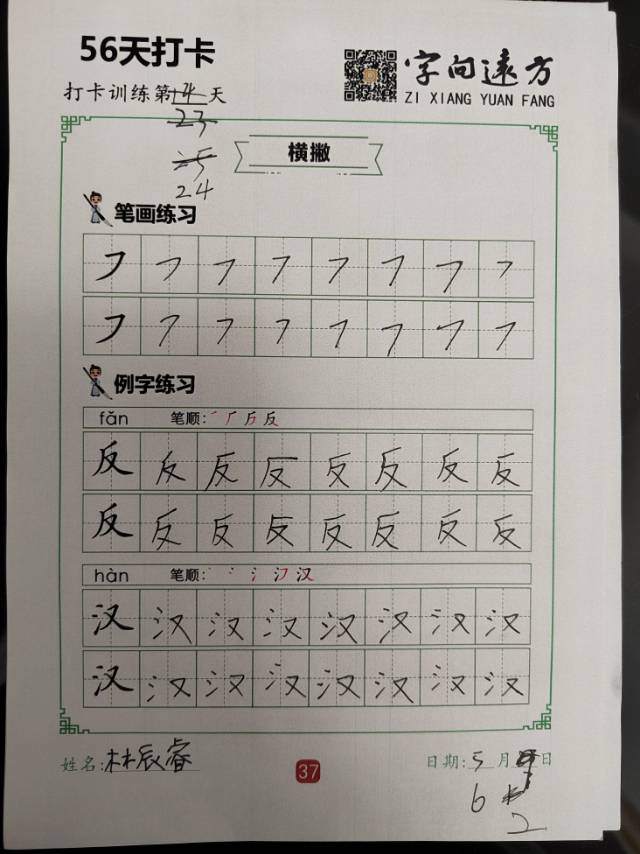 56天打卡
字向远方
打卡训练第14天
ZI XIANG YUAN FANG
23
25
24
横撇
笔画练习
例字练习
fǎn 笔顺: 反
反 反 反 反 反 反 反 反
反 反 反 反 反 反 反 反
hàn 笔顺: 汉
汉 汉 汉 汉 汉 汉 汉 汉
汉 汉 汉 汉 汉 汉 汉 汉
姓名:林辰睿
37
日期:5月日
6
2